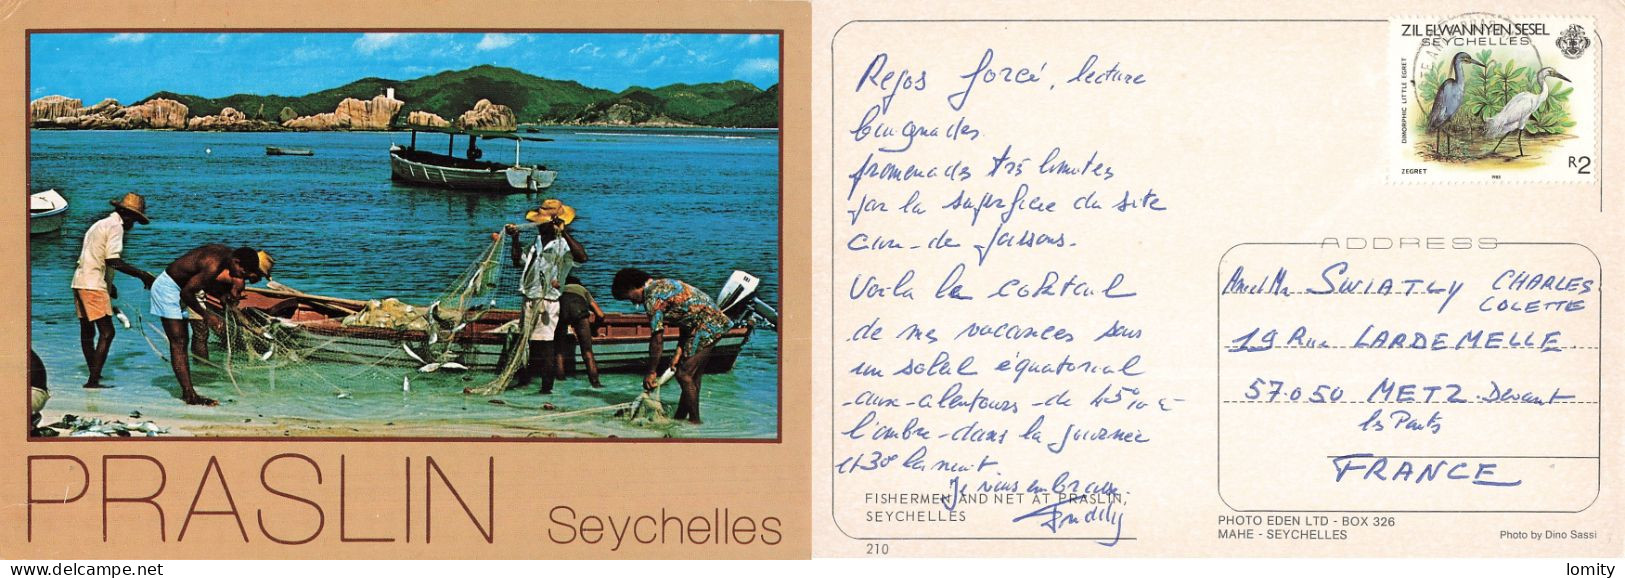 PRASLIN Seychelles
Repos forcé, lecture
baignades
promenades très limitées
par la superficie du site
Voilà le cocktail
de mes vacances sous
un soleil équatorial
aux alentours de 45° à
l'ombre dans la journée
et 30° la nuit.
Je vous embrasse
FISHERMEN AND NET AT PRASLIN,
SEYCHELLES
210
ZIL ELWANNYEN SESEL
SEYCHELLES
DIMORPHIC LITTLE EGRET
R2
ZEGRET
1983
ADDRESS
SWIATLY CHARLES
COLETTE
19 Rue LARDEMELLE
57.050 METZ Devant
les Ponts
FRANCE
PHOTO EDEN LTD - BOX 326
MAHE - SEYCHELLES
Photo by Dino Sassi
lomity
delcampe.net